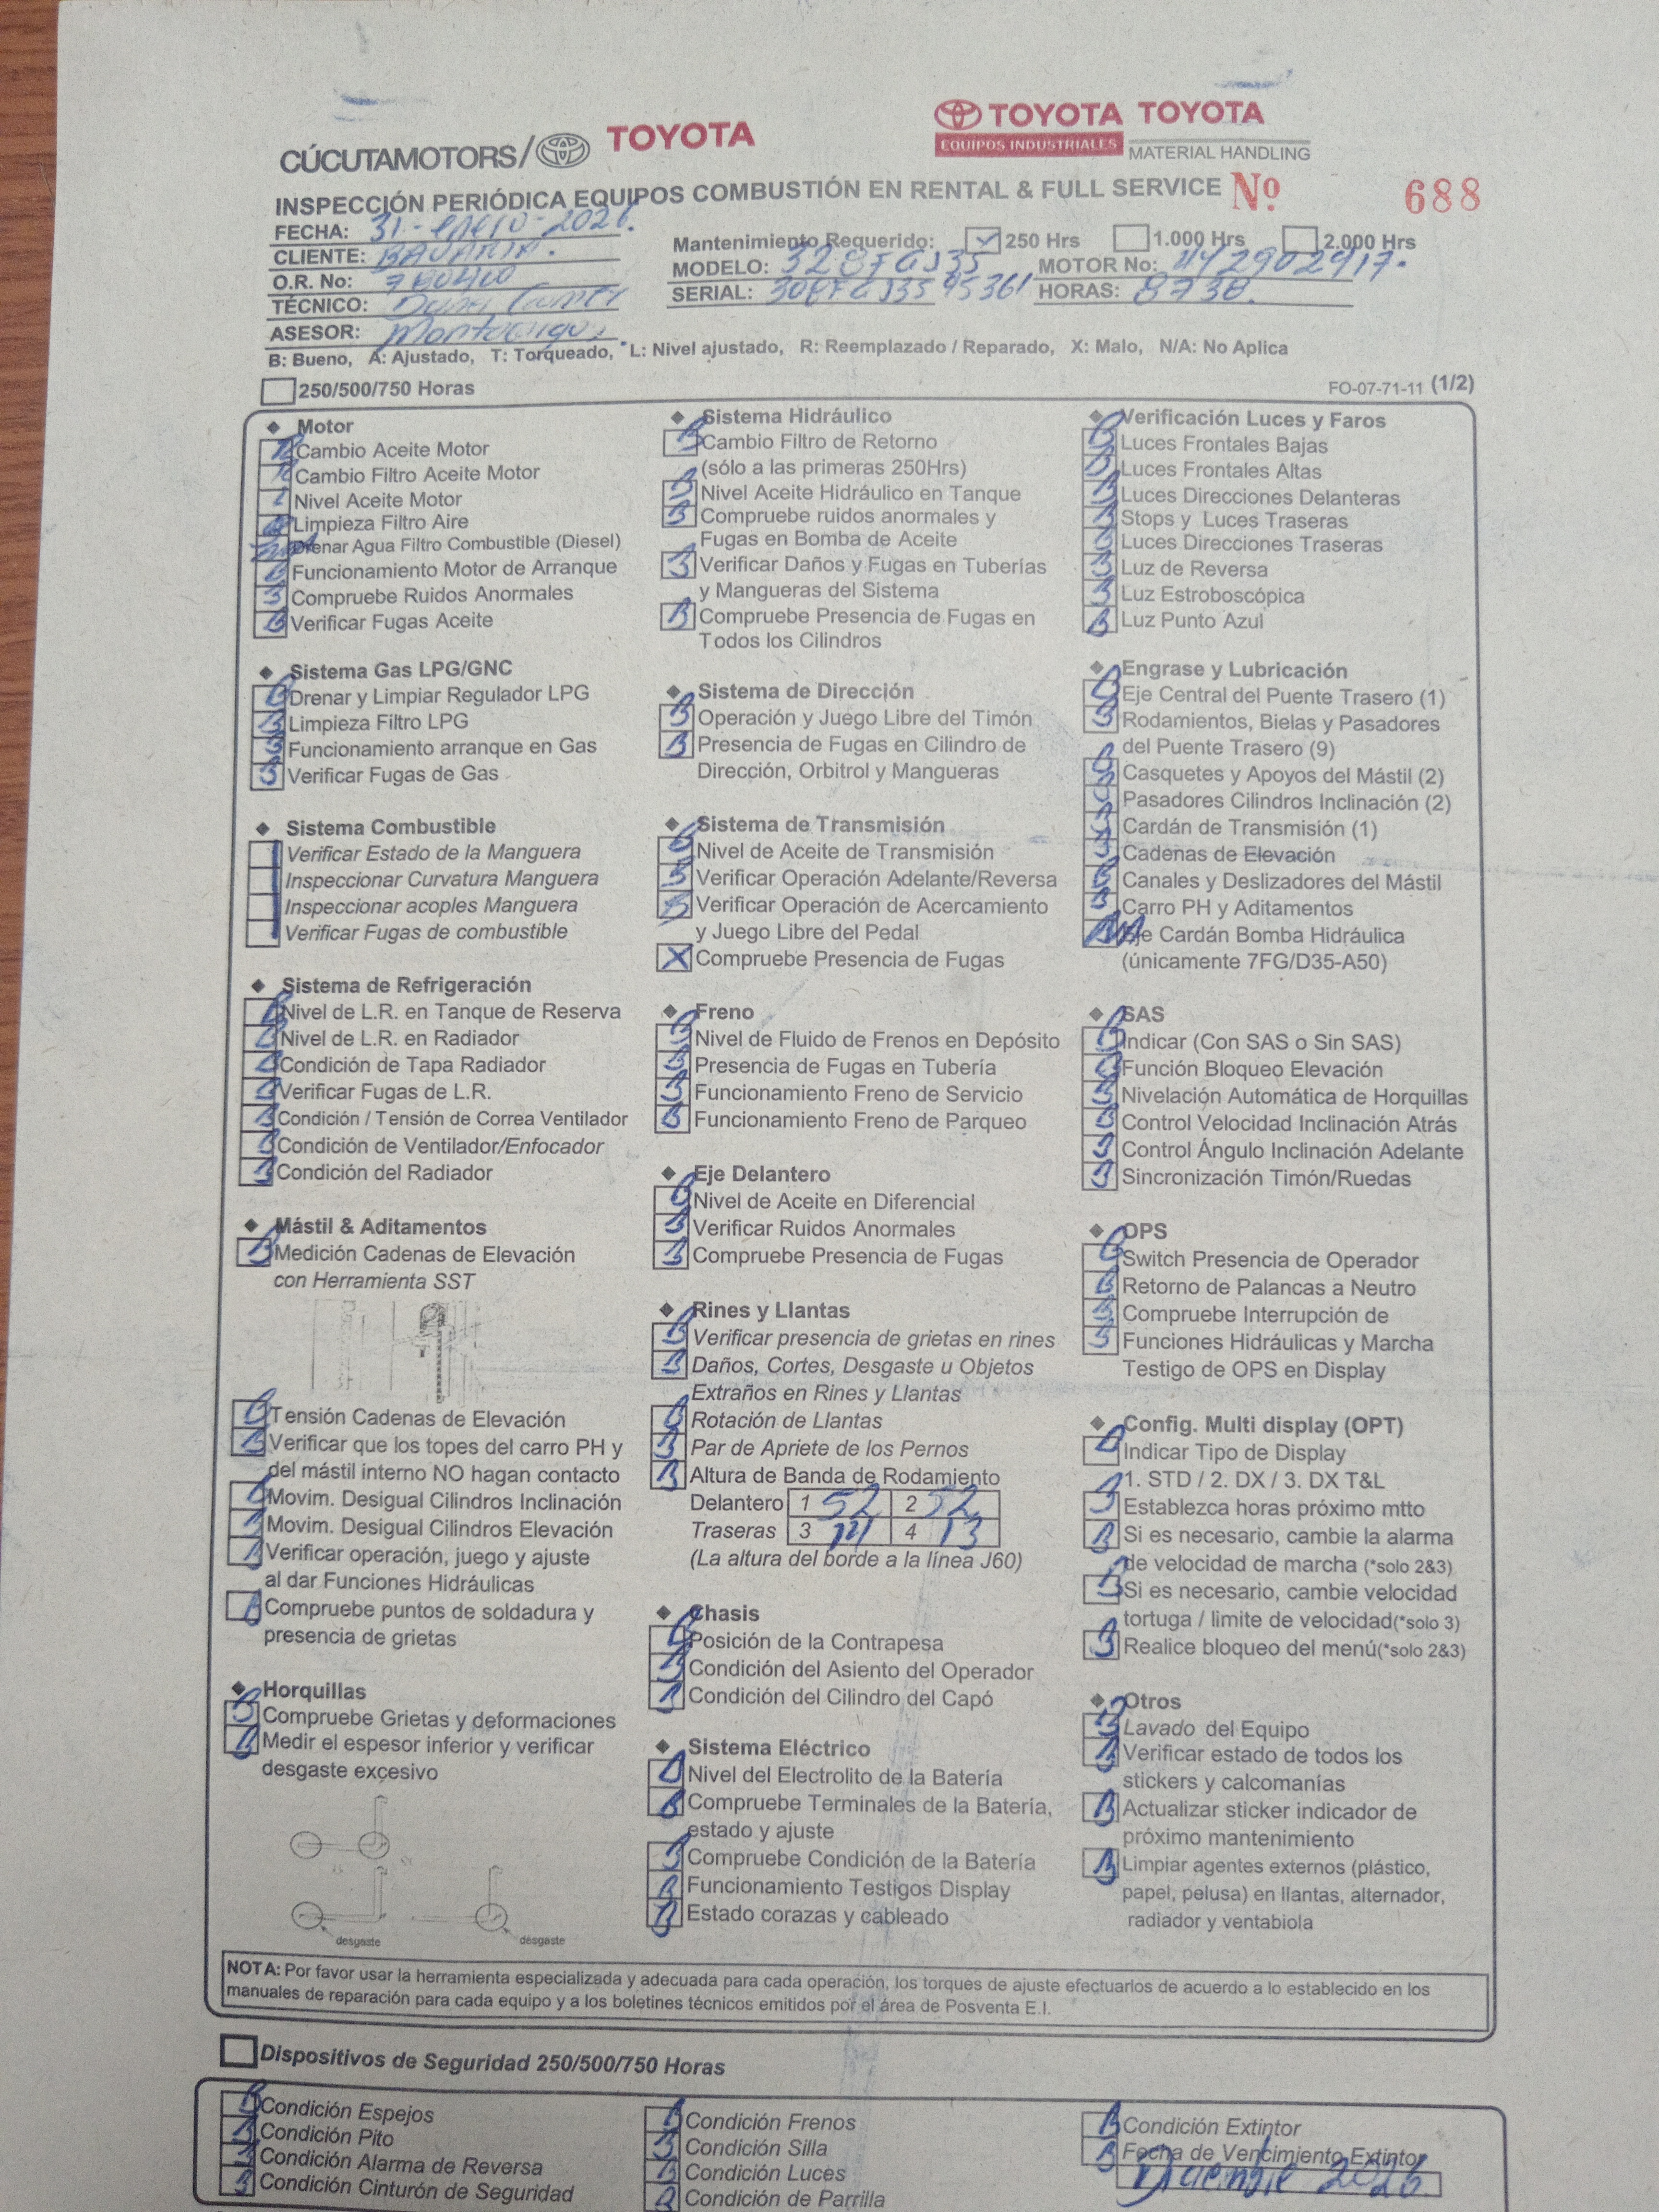 CÚCUTAMOTORS/ TOYOTA
TOYOTA TOYOTA
EQUIPOS INDUSTRIALES MATERIAL HANDLING
INSPECCIÓN PERIÓDICA EQUIPOS COMBUSTIÓN EN RENTAL & FULL SERVICE Nº 688
FECHA: 31-enero-2026.
CLIENTE: BAVARIA.
O.R. No:
TÉCNICO:
ASESOR:
Mantenimiento Requerido: 250 Hrs 1.000 Hrs 2.000 Hrs
MODELO: MOTOR No:
SERIAL: HORAS: 8738.
B: Bueno, A: Ajustado, T: Torqueado, L: Nivel ajustado, R: Reemplazado / Reparado, X: Malo, N/A: No Aplica
250/500/750 Horas
FO-07-71-11 (1/2)
Motor
Cambio Aceite Motor
Cambio Filtro Aceite Motor
Nivel Aceite Motor
Limpieza Filtro Aire
Drenar Agua Filtro Combustible (Diesel)
B Funcionamiento Motor de Arranque
B Compruebe Ruidos Anormales
B Verificar Fugas Aceite
Sistema Gas LPG/GNC
B Drenar y Limpiar Regulador LPG
B Limpieza Filtro LPG
B Funcionamiento arranque en Gas
B Verificar Fugas de Gas
Sistema Combustible
Verificar Estado de la Manguera
Inspeccionar Curvatura Manguera
Inspeccionar acoples Manguera
Verificar Fugas de combustible
Sistema de Refrigeración
B Nivel de L.R. en Tanque de Reserva
B Nivel de L.R. en Radiador
B Condición de Tapa Radiador
B Verificar Fugas de L.R.
B Condición / Tensión de Correa Ventilador
B Condición de Ventilador/Enfocador
B Condición del Radiador
Mástil & Aditamentos
B Medición Cadenas de Elevación
con Herramienta SST
B Tensión Cadenas de Elevación
B Verificar que los topes del carro PH y
del mástil interno NO hagan contacto
B Movim. Desigual Cilindros Inclinación
B Movim. Desigual Cilindros Elevación
B Verificar operación, juego y ajuste
al dar Funciones Hidráulicas
B Compruebe puntos de soldadura y
presencia de grietas
Horquillas
B Compruebe Grietas y deformaciones
B Medir el espesor inferior y verificar
desgaste excesivo
desgaste
desgaste
Sistema Hidráulico
B Cambio Filtro de Retorno
(sólo a las primeras 250Hrs)
B Nivel Aceite Hidráulico en Tanque
B Compruebe ruidos anormales y
Fugas en Bomba de Aceite
B Verificar Daños y Fugas en Tuberías
y Mangueras del Sistema
B Compruebe Presencia de Fugas en
Todos los Cilindros
Sistema de Dirección
B Operación y Juego Libre del Timón
B Presencia de Fugas en Cilindro de
Dirección, Orbitrol y Mangueras
Sistema de Transmisión
B Nivel de Aceite de Transmisión
B Verificar Operación Adelante/Reversa
B Verificar Operación de Acercamiento
y Juego Libre del Pedal
X Compruebe Presencia de Fugas
Freno
B Nivel de Fluido de Frenos en Depósito
B Presencia de Fugas en Tubería
B Funcionamiento Freno de Servicio
B Funcionamiento Freno de Parqueo
Eje Delantero
B Nivel de Aceite en Diferencial
B Verificar Ruidos Anormales
B Compruebe Presencia de Fugas
Rines y Llantas
B Verificar presencia de grietas en rines
B Daños, Cortes, Desgaste u Objetos
Extraños en Rines y Llantas
B Rotación de Llantas
B Par de Apriete de los Pernos
B Altura de Banda de Rodamiento
Delantero 1 52 2 52
Traseras 3 4 13
(La altura del borde a la línea J60)
Chasis
B Posición de la Contrapesa
B Condición del Asiento del Operador
B Condición del Cilindro del Capó
Sistema Eléctrico
B Nivel del Electrolito de la Batería
B Compruebe Terminales de la Batería,
estado y ajuste
B Compruebe Condición de la Batería
B Funcionamiento Testigos Display
B Estado corazas y cableado
Verificación Luces y Faros
B Luces Frontales Bajas
B Luces Frontales Altas
B Luces Direcciones Delanteras
B Stops y Luces Traseras
B Luces Direcciones Traseras
B Luz de Reversa
B Luz Estroboscópica
B Luz Punto Azul
Engrase y Lubricación
B Eje Central del Puente Trasero (1)
B Rodamientos, Bielas y Pasadores
del Puente Trasero (9)
B Casquetes y Apoyos del Mástil (2)
B Pasadores Cilindros Inclinación (2)
B Cardán de Transmisión (1)
B Cadenas de Elevación
B Canales y Deslizadores del Mástil
B Carro PH y Aditamentos
Eje Cardán Bomba Hidráulica
(únicamente 7FG/D35-A50)
SAS
B Indicar (Con SAS o Sin SAS)
B Función Bloqueo Elevación
B Nivelación Automática de Horquillas
B Control Velocidad Inclinación Atrás
B Control Ángulo Inclinación Adelante
B Sincronización Timón/Ruedas
OPS
B Switch Presencia de Operador
B Retorno de Palancas a Neutro
B Compruebe Interrupción de
B Funciones Hidráulicas y Marcha
Testigo de OPS en Display
Config. Multi display (OPT)
B Indicar Tipo de Display
1. STD / 2. DX / 3. DX T&L
B Establezca horas próximo mtto
B Si es necesario, cambie la alarma
de velocidad de marcha (*solo 2&3)
B Si es necesario, cambie velocidad
tortuga / limite de velocidad(*solo 3)
B Realice bloqueo del menú(*solo 2&3)
Otros
B Lavado del Equipo
B Verificar estado de todos los
stickers y calcomanías
B Actualizar sticker indicador de
próximo mantenimiento
B Limpiar agentes externos (plástico,
papel, pelusa) en llantas, alternador,
radiador y ventabiola
NOTA: Por favor usar la herramienta especializada y adecuada para cada operación, los torques de ajuste efectuarlos de acuerdo a lo establecido en los
manuales de reparación para cada equipo y a los boletines técnicos emitidos por el área de Posventa E.I.
Dispositivos de Seguridad 250/500/750 Horas
B Condición Espejos
B Condición Pito
B Condición Alarma de Reversa
B Condición Cinturón de Seguridad
B Condición Frenos
B Condición Silla
B Condición Luces
B Condición de Parrilla
B Condición Extintor
B Fecha de Vencimiento Extintor
Diciembre 2026